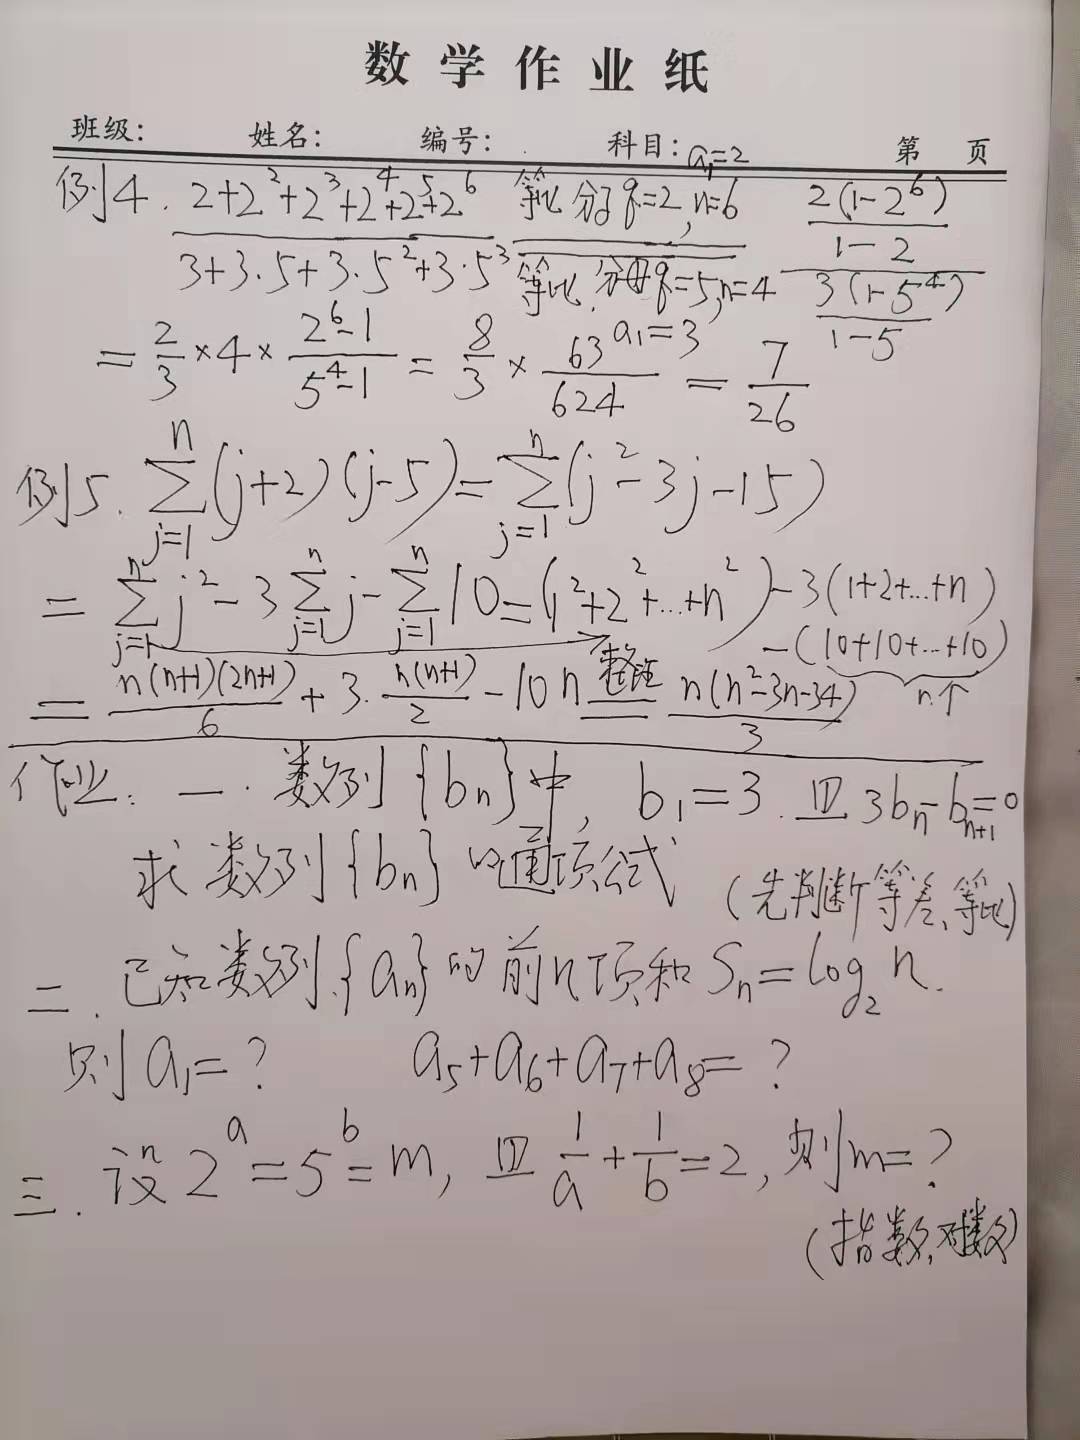 数学作业纸
班级: 姓名: 编号: 科目: 第 页
a₁=2
例4. (2+2²+2³+2⁴+2⁵+2⁶)/(3+3·5+3·5²+3·5³) 等比 分子 q=2, n=6 / 等比, 分母 q=5, n=4 a₁=3 (2(1-2⁶)/(1-2))/(3(1-5⁴)/(1-5))
= 2/3 × 4 × (2⁶-1)/(5⁴-1) = 8/3 × 63/624 = 7/26
例5. ∑_{j=1}^{n}(j+2)(j-5) = ∑_{j=1}^{n}(j²-3j-15)
= ∑_{j=1}^{n}j²-3∑_{j=1}^{n}j-∑_{j=1}^{n}10=(1²+2²+...+n²)-3(1+2+...+n)
-(10+10+...+10) n个
= n(n+1)(2n+1)/6 + 3·n(n+1)/2 - 10n 整理= n(n²-3n-34)/3
作业: 一. 数列{bn}中, b₁=3. 且3bn-bn+1=0
求数列{bn}的通项公式 (先判断等差、等比)
二. 已知数列{an}的前n项和Sn=log₂n.
则a₁=? a₅+a₆+a₇+a₈=?
三. 设2ᵃ=5ᵇ=m, 且1/a+1/b=2, 则m=?
(指数,对数)